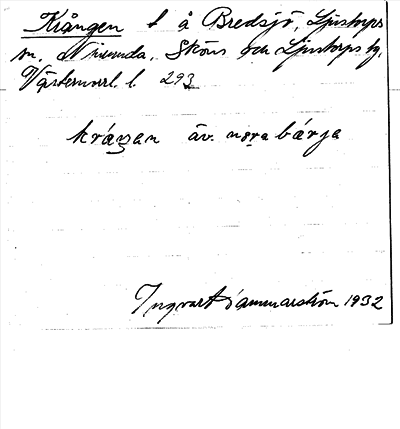 Krången l å Bredsjö, Ljustorps
sn. Njurunda, Sköns och Ljustorps tg,
Västernorrl. l. 293
kráŋan äv. nọrạ bárja
Ingvart Hammarström 1932